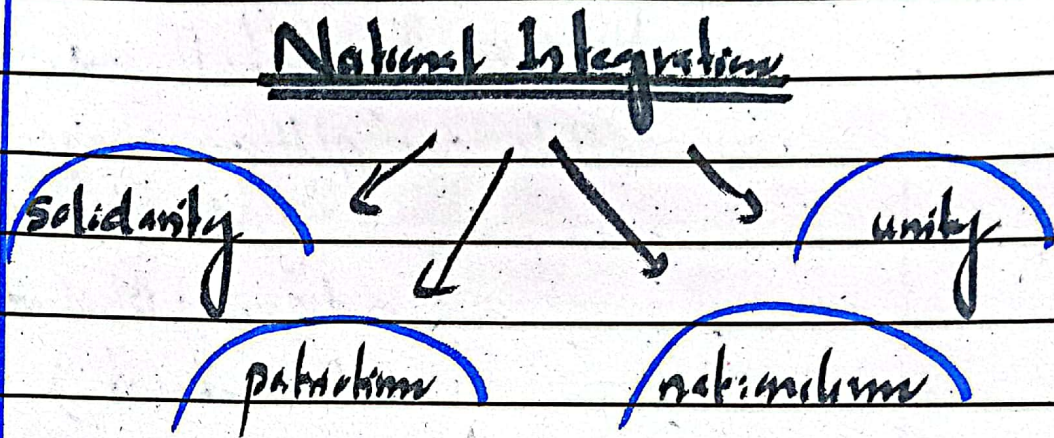 National Integration
solidarity
unity
patriotism
nationalism